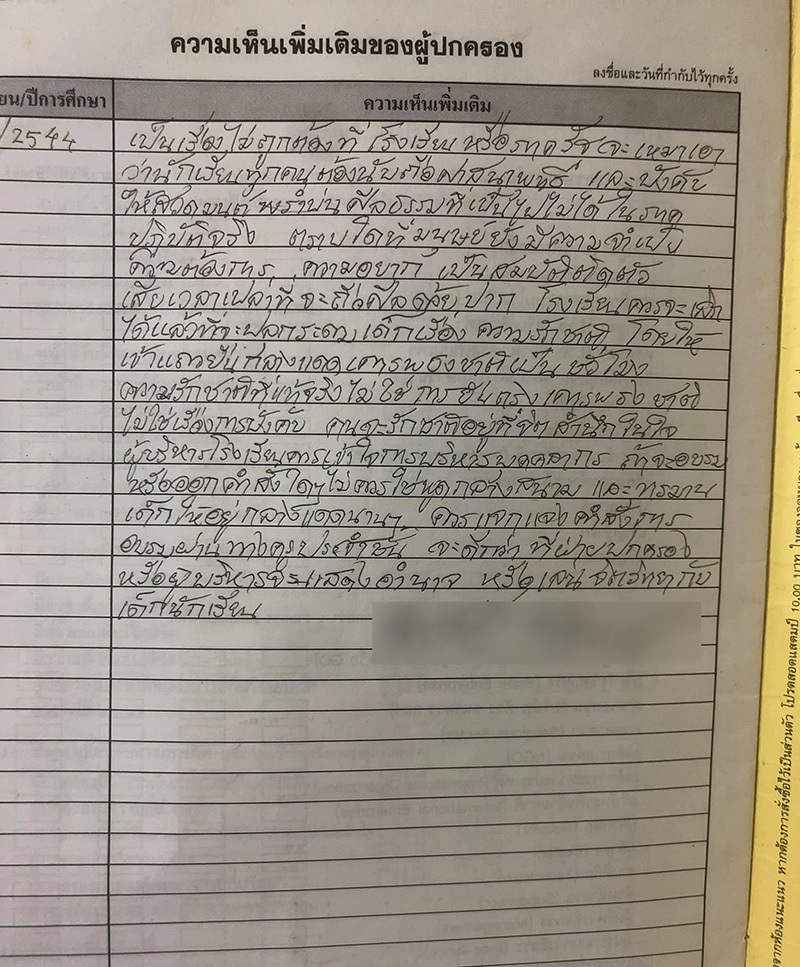 ความเห็นเพิ่มเติมของผู้ปกครอง
ลงชื่อและวันที่กำกับไว้ทุกครั้ง
ยน/ปีการศึกษา
ความเห็นเพิ่มเติม
/2544
เป็นเรื่องไม่ถูกต้องที่ โรงเรียน หรือภาครัฐจะเหมาเอา
ว่านักเรียนทุกคนต้องนับถือศาสนาพุทธ และบังคับ
ให้สวดมนต์ พร่ำบ่น ศีลธรรมที่เป็นไปไม่ได้ในภาค
ปฏิบัติจริง ตราบใดที่มนุษย์ยังมีความจำเป็น
ความต้องการ ความอยาก เป็นสมบัติติดตัว
เสียเวลาเปล่าที่จะถือศีลด้วยปาก โรงเรียนควรจะเลิก
ได้แล้วที่จะ เด็กเรื่อง ความรักชาติ โดยให้
เข้าแถวยืนกลางแดดเคารพธงชาติเป็นชั่วโมง
ความรักชาติที่แท้จริงไม่ใช่ การยืนตรงเคารพธงชาติ
ไม่ใช่เรื่องการบังคับ คนจะรักชาติอยู่ที่จิตสำนึกในใจ
ผู้บริหารโรงเรียนควรเข้าใจการบริหารบุคคลากร ถ้าจะอบรม
หรือออกคำสั่งใดๆไม่ควรใช้พูดกลางสนาม และทรมาน
เด็กให้อยู่กลางแดดนานๆ ควรแจกแจงคำสั่งการ
อบรมผ่านทางครูประจำชั้น จะดีกว่า ที่ฝ่ายปกครอง
หรือผู้บริหารจะแสดงอำนาจ หรือเล่นจิตวิทยากับ
เด็กนักเรียน
10.00 บาท
โปรดสอดแสตมป์
หากต้องการสั่งซื้อไว้เป็นส่วนตัว
จากห้องแนะแนว